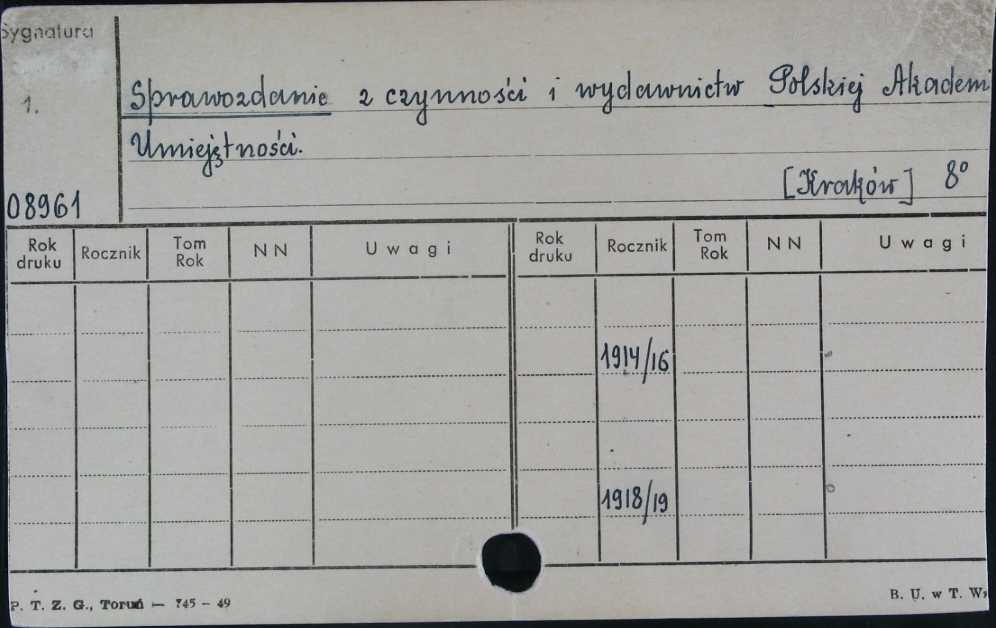 Sygnatura
1.
08961
Sprawozdanie z czynności i wydawnictw Polskiej Akademi
Umiejętności.
[Kraków] 8°
Rok druku Rocznik Tom Rok NN Uwagi Rok druku Rocznik Tom Rok NN Uwagi
1914/16
1918/19
P. T. Z. G., Toruń — 745 - 49
B. U. w T. W.